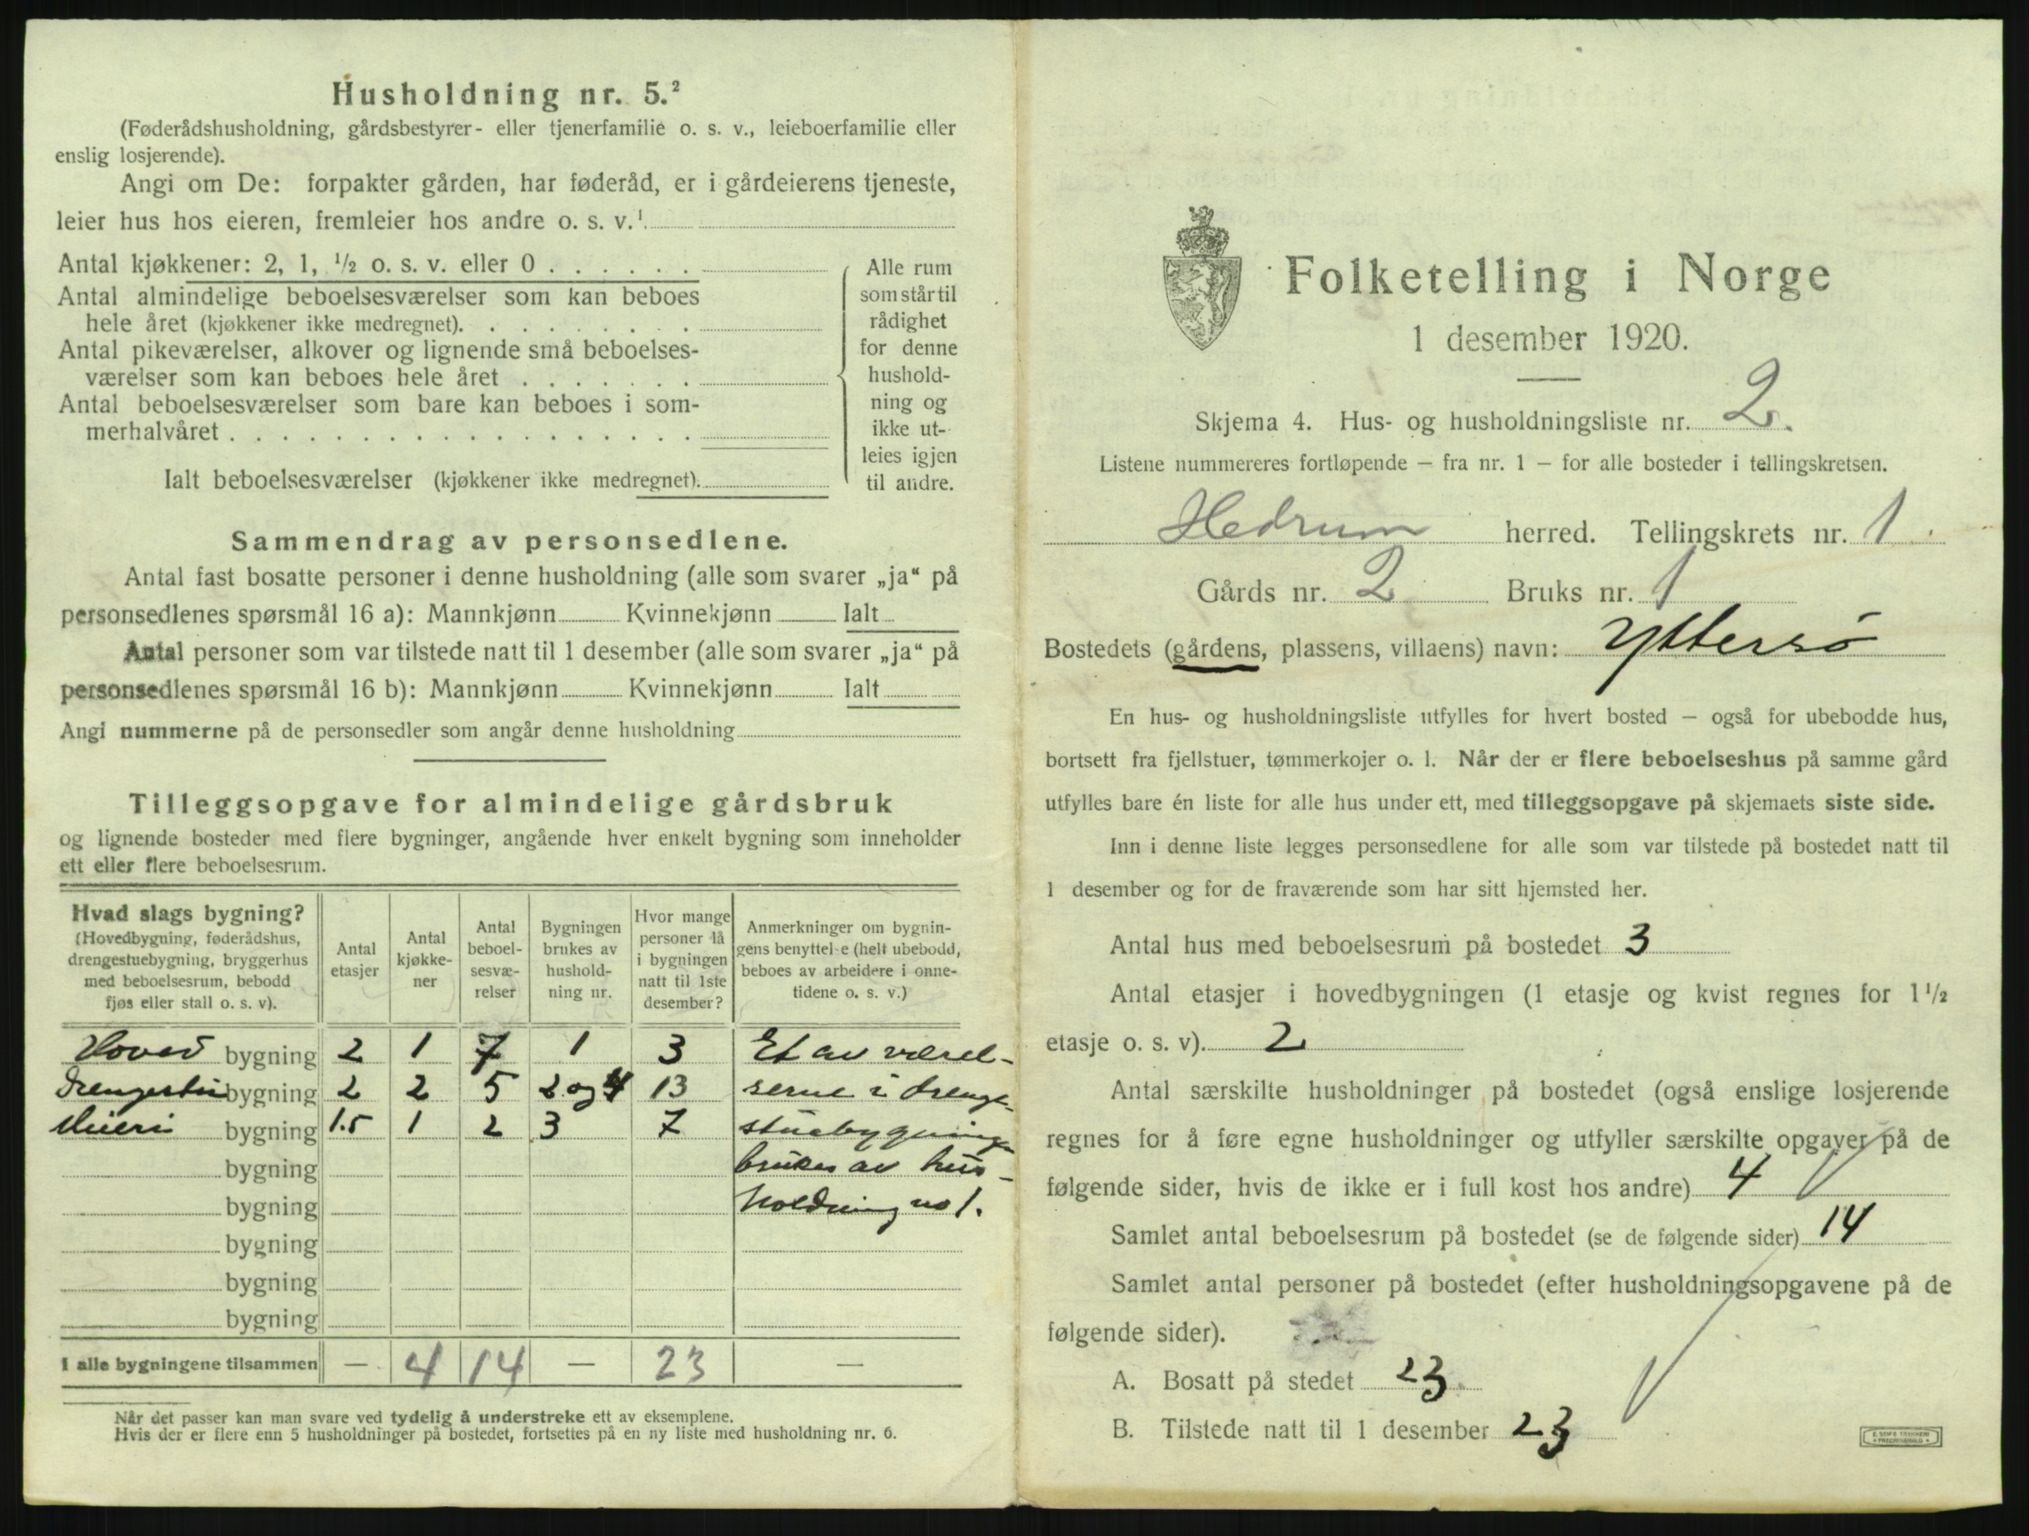 Husholdning nr. 5.²
(Føderådshusholdning, gårdsbestyrer- eller tjenerfamilie o. s. v., leieboerfamilie eller
enslig losjerende).
Angi om De: forpakter gården, har føderåd, er i gårdeierens tjeneste,
leier hus hos eieren, fremleier hos andre o. s. v.¹
Antal kjøkkener: 2, 1, ½ o. s. v. eller 0 . . . . . .
Antal almindelige beboelsesværelser som kan beboes
hele året (kjøkkener ikke medregnet). . . . . . . . .
Antal pikeværelser, alkover og lignende små beboelses-
værelser som kan beboes hele året . . . . . . .
Antal beboelsesværelser som bare kan beboes i som-
merhalvåret . . . . . . . . . . . . . . . . . .
Ialt beboelsesværelser (kjøkkener ikke medregnet).
Alle rum
som står til
rådighet
for denne
hushold-
ning og
ikke ut-
leies igjen
til andre.
Sammendrag av personsedlene.
Antal fast bosatte personer i denne husholdning (alle som svarer „ja“ på
personsedlenes spørsmål 16 a): Mannkjønn Kvinnekjønn Ialt
Antal personer som var tilstede natt til 1 desember (alle som svarer „ja“ på
personsedlenes spørsmål 16 b): Mannkjønn Kvinnekjønn Ialt
Angi nummerne på de personsedler som angår denne husholdning
Tilleggsopgave for almindelige gårdsbruk
og lignende bosteder med flere bygninger, angående hver enkelt bygning som inneholder
ett eller flere beboelsesrum.
Hvad slags bygning?
(Hovedbygning, føderådshus,
drengestuebygning, bryggerhus
med beboelsesrum, bebodd
fjøs eller stall o. s. v).
Antal
etasjer
Antal
kjøkke-
ner
Antal
beboel-
sesvæ-
relser
Bygningen
brukes av
hushold-
ning nr.
Hvor mange
personer lå
i bygningen
natt til 1ste
desember?
Anmerkninger om bygnin-
gens benyttelse (helt ubebodd,
beboes av arbeidere i onne-
tidene o. s. v.)
Hoved bygning 2 1 7 1 3 Et av værel-
Drengestu bygning 2 2 5 2 og 4 13 serne i drenge-
Mieri bygning 1.5 1 2 3 7 stuebygningen
bygning brukes av hus-
bygning holdning no 1.
bygning
bygning
bygning
I alle bygningene tilsammen — 4 14 — 23 —
Når det passer kan man svare ved tydelig å understreke ett av eksemplene.
Hvis der er flere enn 5 husholdninger på bostedet, fortsettes på en ny liste med husholdning nr. 6.
Folketelling i Norge
1 desember 1920.
Skjema 4. Hus- og husholdningsliste nr. 2.
Listene nummereres fortløpende – fra nr. 1 – for alle bosteder i tellingskretsen.
Hedrum herred. Tellingskrets nr. 1.
Gårds nr. 2 Bruks nr. 1
Bostedets (gårdens, plassens, villaens) navn: Yttersø
En hus- og husholdningsliste utfylles for hvert bosted – også for ubebodde hus,
bortsett fra fjellstuer, tømmerkojer o. l. Når der er flere beboelseshus på samme gård
utfylles bare én liste for alle hus under ett, med tilleggsopgave på skjemaets siste side.
Inn i denne liste legges personsedlene for alle som var tilstede på bostedet natt til
1 desember og for de fraværende som har sitt hjemsted her.
Antal hus med beboelsesrum på bostedet 3
Antal etasjer i hovedbygningen (1 etasje og kvist regnes for 1½
etasje o. s. v). 2
Antal særskilte husholdninger på bostedet (også enslige losjerende
regnes for å føre egne husholdninger og utfyller særskilte opgaver på de
følgende sider, hvis de ikke er i full kost hos andre) 4
Samlet antal beboelsesrum på bostedet (se de følgende sider) 14
Samlet antal personer på bostedet (efter husholdningsopgavene på de
følgende sider).
A. Bosatt på stedet 23
B. Tilstede natt til 1 desember 23